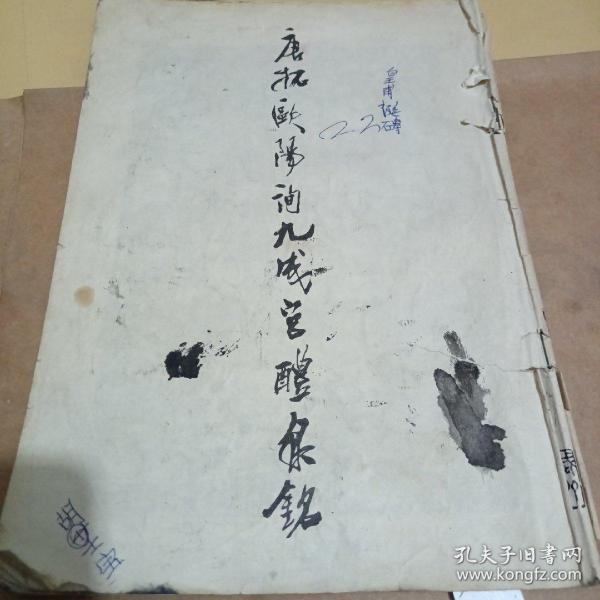 唐拓歐陽詢九成宮醴泉銘
皇甫碑
22
孔夫子旧书网
www.kongfz.com